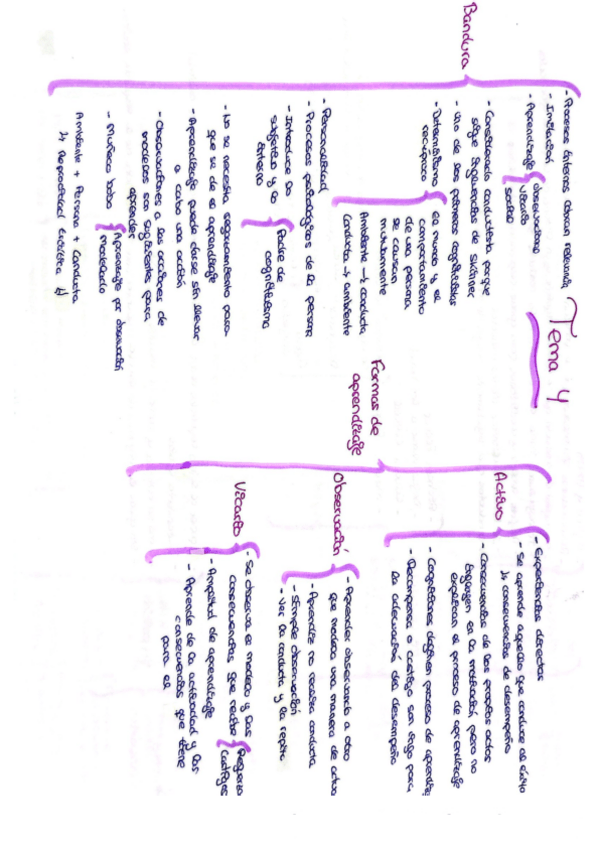 Tema 4
Bandura
- Procesos internos cobran relevancia
- Imitación
- Aprendizaje
observacional
vicario
social
- Considerado conductista porque
sigue lineamientos de Skinner
- Uno de los primeros cognitivistas
- Determinismo
recíproco
El mundo y el
comportamiento
de una persona
se causan
mutuamente
Ambiente → conducta
Conducta → ambiente
- Personalidad
- Procesos psicológicos de la persona
- Introduce lo
subjetivo y lo
interno
Padre de
cognitivismo
- No se necesita reforzamiento para
que se dé el aprendizaje
- Aprendizaje puede darse sin llevar
a cabo una acción
- Observaciones a las acciones de
modelos son suficientes para
aprender
- Muñeco bobo
Aprendizaje por observación
modelado
Ambiente + Persona + Conducta
Formas de
aprendizaje
Activo
- Experiencias directas
- Se aprende aquello que conduce al éxito
↳ consecuencias de desempeño
- Consecuencias de los propios actos
influyen en la motivación pero no
explican el proceso de aprendizaje
- Cogniciones definen proceso de aprendizaje
- Recompensa o castigo son algo para
la adecuación del desempeño
Observación
- Aprender observando a otro
que modela una manera de actuar
- Aprendiz no realiza conducta
- Simple observación
- Ver la conducta y la repite
Vicario
- Se observa el modelo y las
consecuencias que recibe
Refuerzo
Castigos
- Amplitud de aprendizaje
- Aprende de la actividad y las
consecuencias que tiene
para el